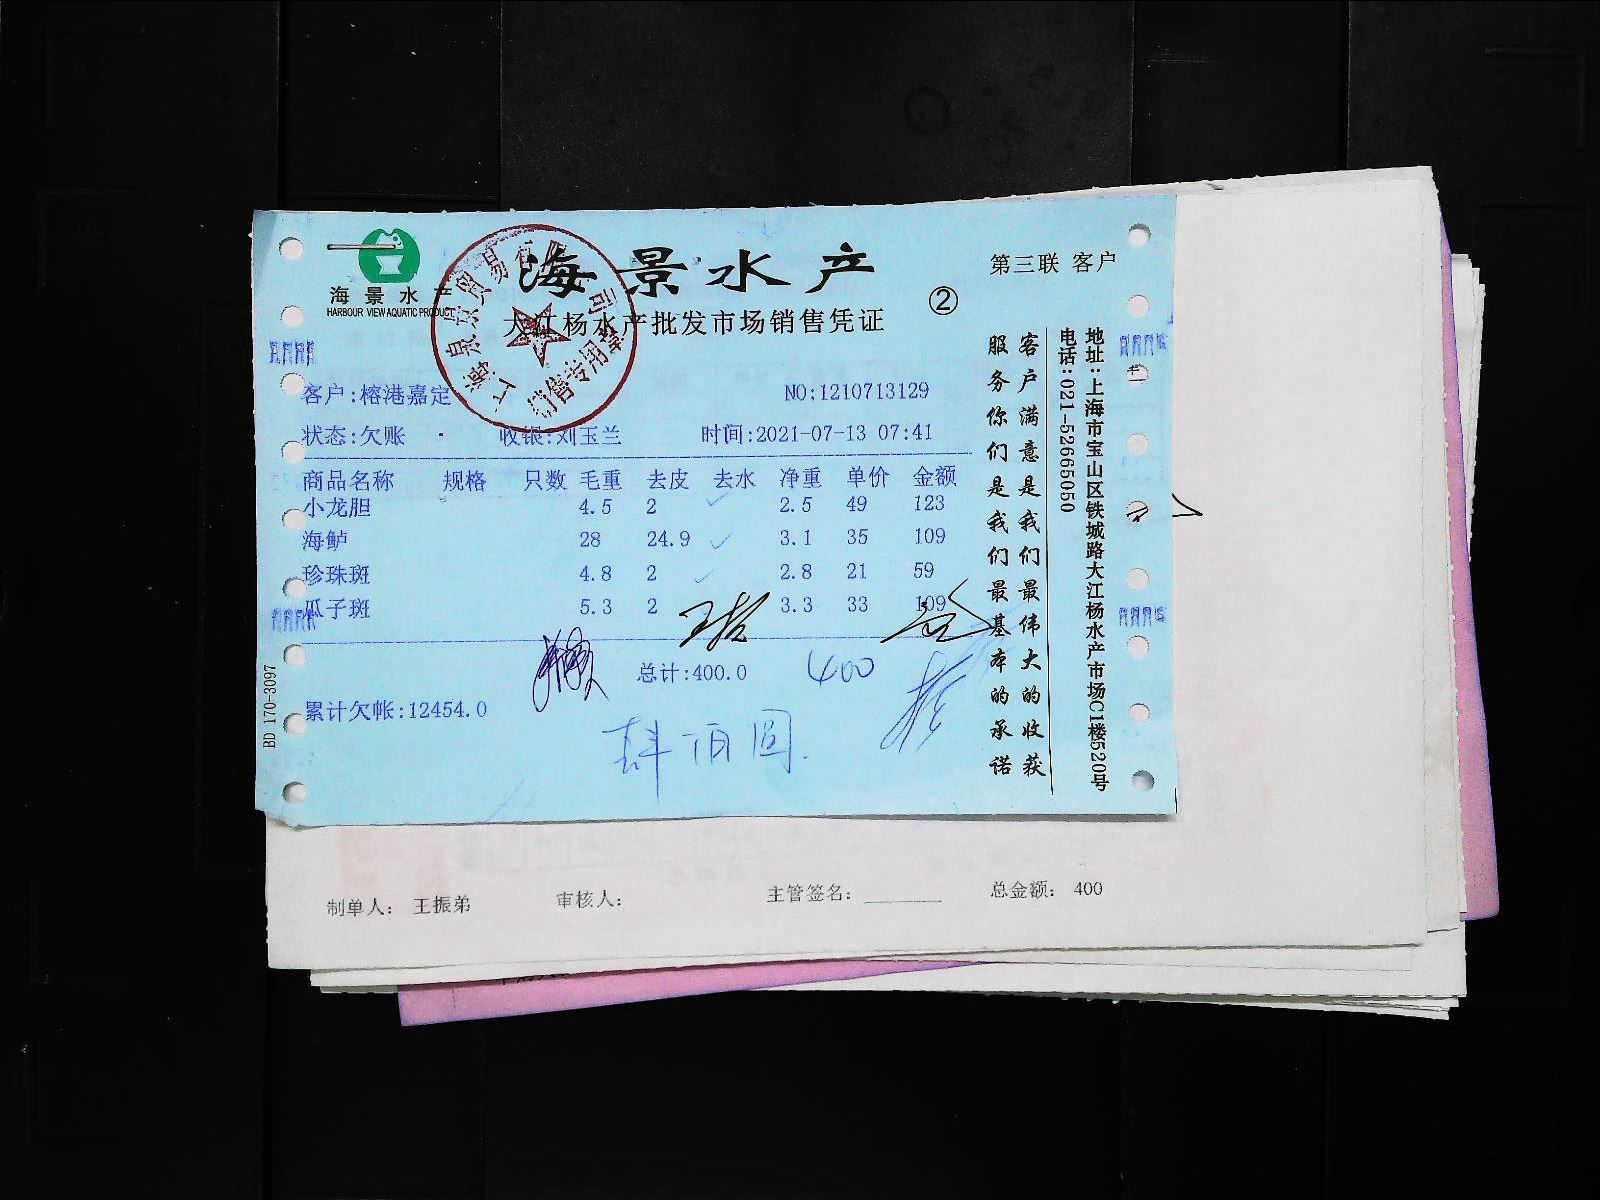 海景水产
HARBOUR VIEW AQUATIC PRODUCT
海景水产
第三联 客户
大江杨水产批发市场销售凭证
②
上海
景贸易有限公司
销售专用章
客户:榕港嘉定
NO:1210713129
状态:欠账
收银:刘玉兰
时间:2021-07-13 07:41
商品名称 规格 只数 毛重 去皮 去水 净重 单价 金额
小龙胆 4.5 2 2.5 49 123
海鲈 28 24.9 3.1 35 109
珍珠斑 4.8 2 2.8 21 59
瓜子斑 5.3 2 3.3 33 109
总计:400.0
400
累计欠帐:12454.0
肆佰圆
客户满意是我们最伟大的收获
服务你们是我们最基本的承诺
地址:上海市宝山区铁城路大江杨水产市场C1楼520号
电话:021-52665050
BD 170-3097
制单人: 王振弟 审核人: 主管签名: 总金额: 400